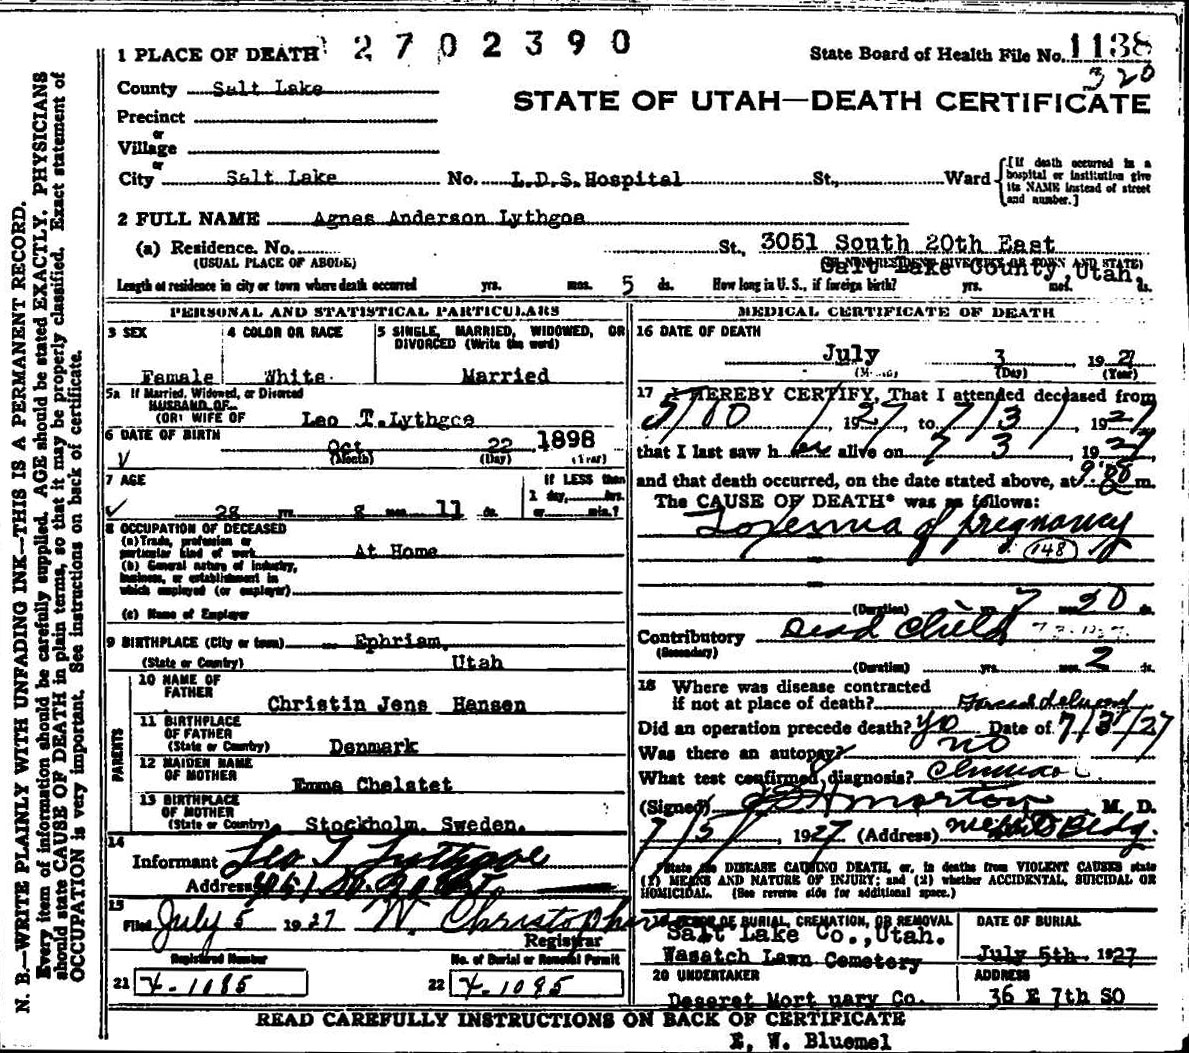 N. B.—WRITE PLAINLY WITH UNFADING INK—THIS IS A PERMANENT RECORD.
Every item of information should be carefully supplied. AGE should be stated EXACTLY. PHYSICIANS
should state CAUSE OF DEATH in plain terms, so that it may be properly classified. Exact statement of
OCCUPATION is very important. See instructions on back of certificate.
1 PLACE OF DEATH 2702390 State Board of Health File No. 1138
320
County Salt Lake
STATE OF UTAH—DEATH CERTIFICATE
Precinct
or
Village
or
City Salt Lake No. L.D.S. Hospital St., Ward
[If death occurred in a hospital or institution give its NAME instead of street and number.]
2 FULL NAME Agnes Anderson Lythgoe
(a) Residence. No. St., 3051 South 20th East
(USUAL PLACE OF ABODE) Salt Lake County, Utah.
Length of residence in city or town where death occurred yrs. mos. 5 ds. How long in U.S., if foreign birth? yrs. mos. ds.
PERSONAL AND STATISTICAL PARTICULARS
3 SEX
Female
4 COLOR OR RACE
White
5 SINGLE, MARRIED, WIDOWED, OR DIVORCED (Write the word)
Married
5a If Married, Widowed, or Divorced
HUSBAND OF
(OR) WIFE OF Leo T. Lythgoe
6 DATE OF BIRTH
Oct 22 1898
(Month) (Day) (Year)
7 AGE
28 yrs. 8 mos. 11 ds.
If LESS than
1 day, hrs.
or min.?
8 OCCUPATION OF DECEASED
(a) Trade, profession or
particular kind of work At Home
(b) General nature of industry,
business, or establishment in
which employed (or employer)
(c) Name of Employer
9 BIRTHPLACE (City or town) Ephriam,
(State or Country) Utah
PARENTS
10 NAME OF FATHER
Christin Jens Hansen
11 BIRTHPLACE OF FATHER
(State or Country) Denmark
12 MAIDEN NAME OF MOTHER
Emma Chelstet
13 BIRTHPLACE OF MOTHER
(State or Country) Stockholm, Sweden.
14
Informant Leo T Lythgoe
Address
15
Filed July 5 1927 W. Christopher
Registrar
Registered Number
21 X-1085
No. of Burial or Removal Permit
22 X-1095
MEDICAL CERTIFICATE OF DEATH
16 DATE OF DEATH
July 3 1927
(Month) (Day) (Year)
17 I HEREBY CERTIFY, That I attended deceased from
5/10/1927, to 7/3/1927
that I last saw her alive on 7 3 1927
and that death occurred, on the date stated above, at 9:00 m.
The CAUSE OF DEATH* was as follows:
Toxemia of pregnancy
148
(Duration) yrs. 7 mos. 20 ds.
Contributory Dead Child
(Secondary)
(Duration) yrs. mos. 2 ds.
18 Where was disease contracted
if not at place of death?
Did an operation precede death? yes Date of 7/3/27
Was there an autopsy? no
What test confirmed diagnosis? Clinical
(Signed) Morton, M. D.
7/5/1927 (Address) Bldg.
*State the DISEASE CAUSING DEATH, or, in deaths from VIOLENT CAUSES state
(1) MEANS AND NATURE OF INJURY; and (2) whether ACCIDENTAL, SUICIDAL OR
HOMICIDAL. (See reverse side for additional space.)
19 PLACE OF BURIAL, CREMATION, OR REMOVAL
Salt Lake Co., Utah.
Wasatch Lawn Cemetery
DATE OF BURIAL
July 5th 1927
20 UNDERTAKER
Deseret Mortuary Co.
ADDRESS
36 E 7th SO
READ CAREFULLY INSTRUCTIONS ON BACK OF CERTIFICATE
E. W. Bluemel